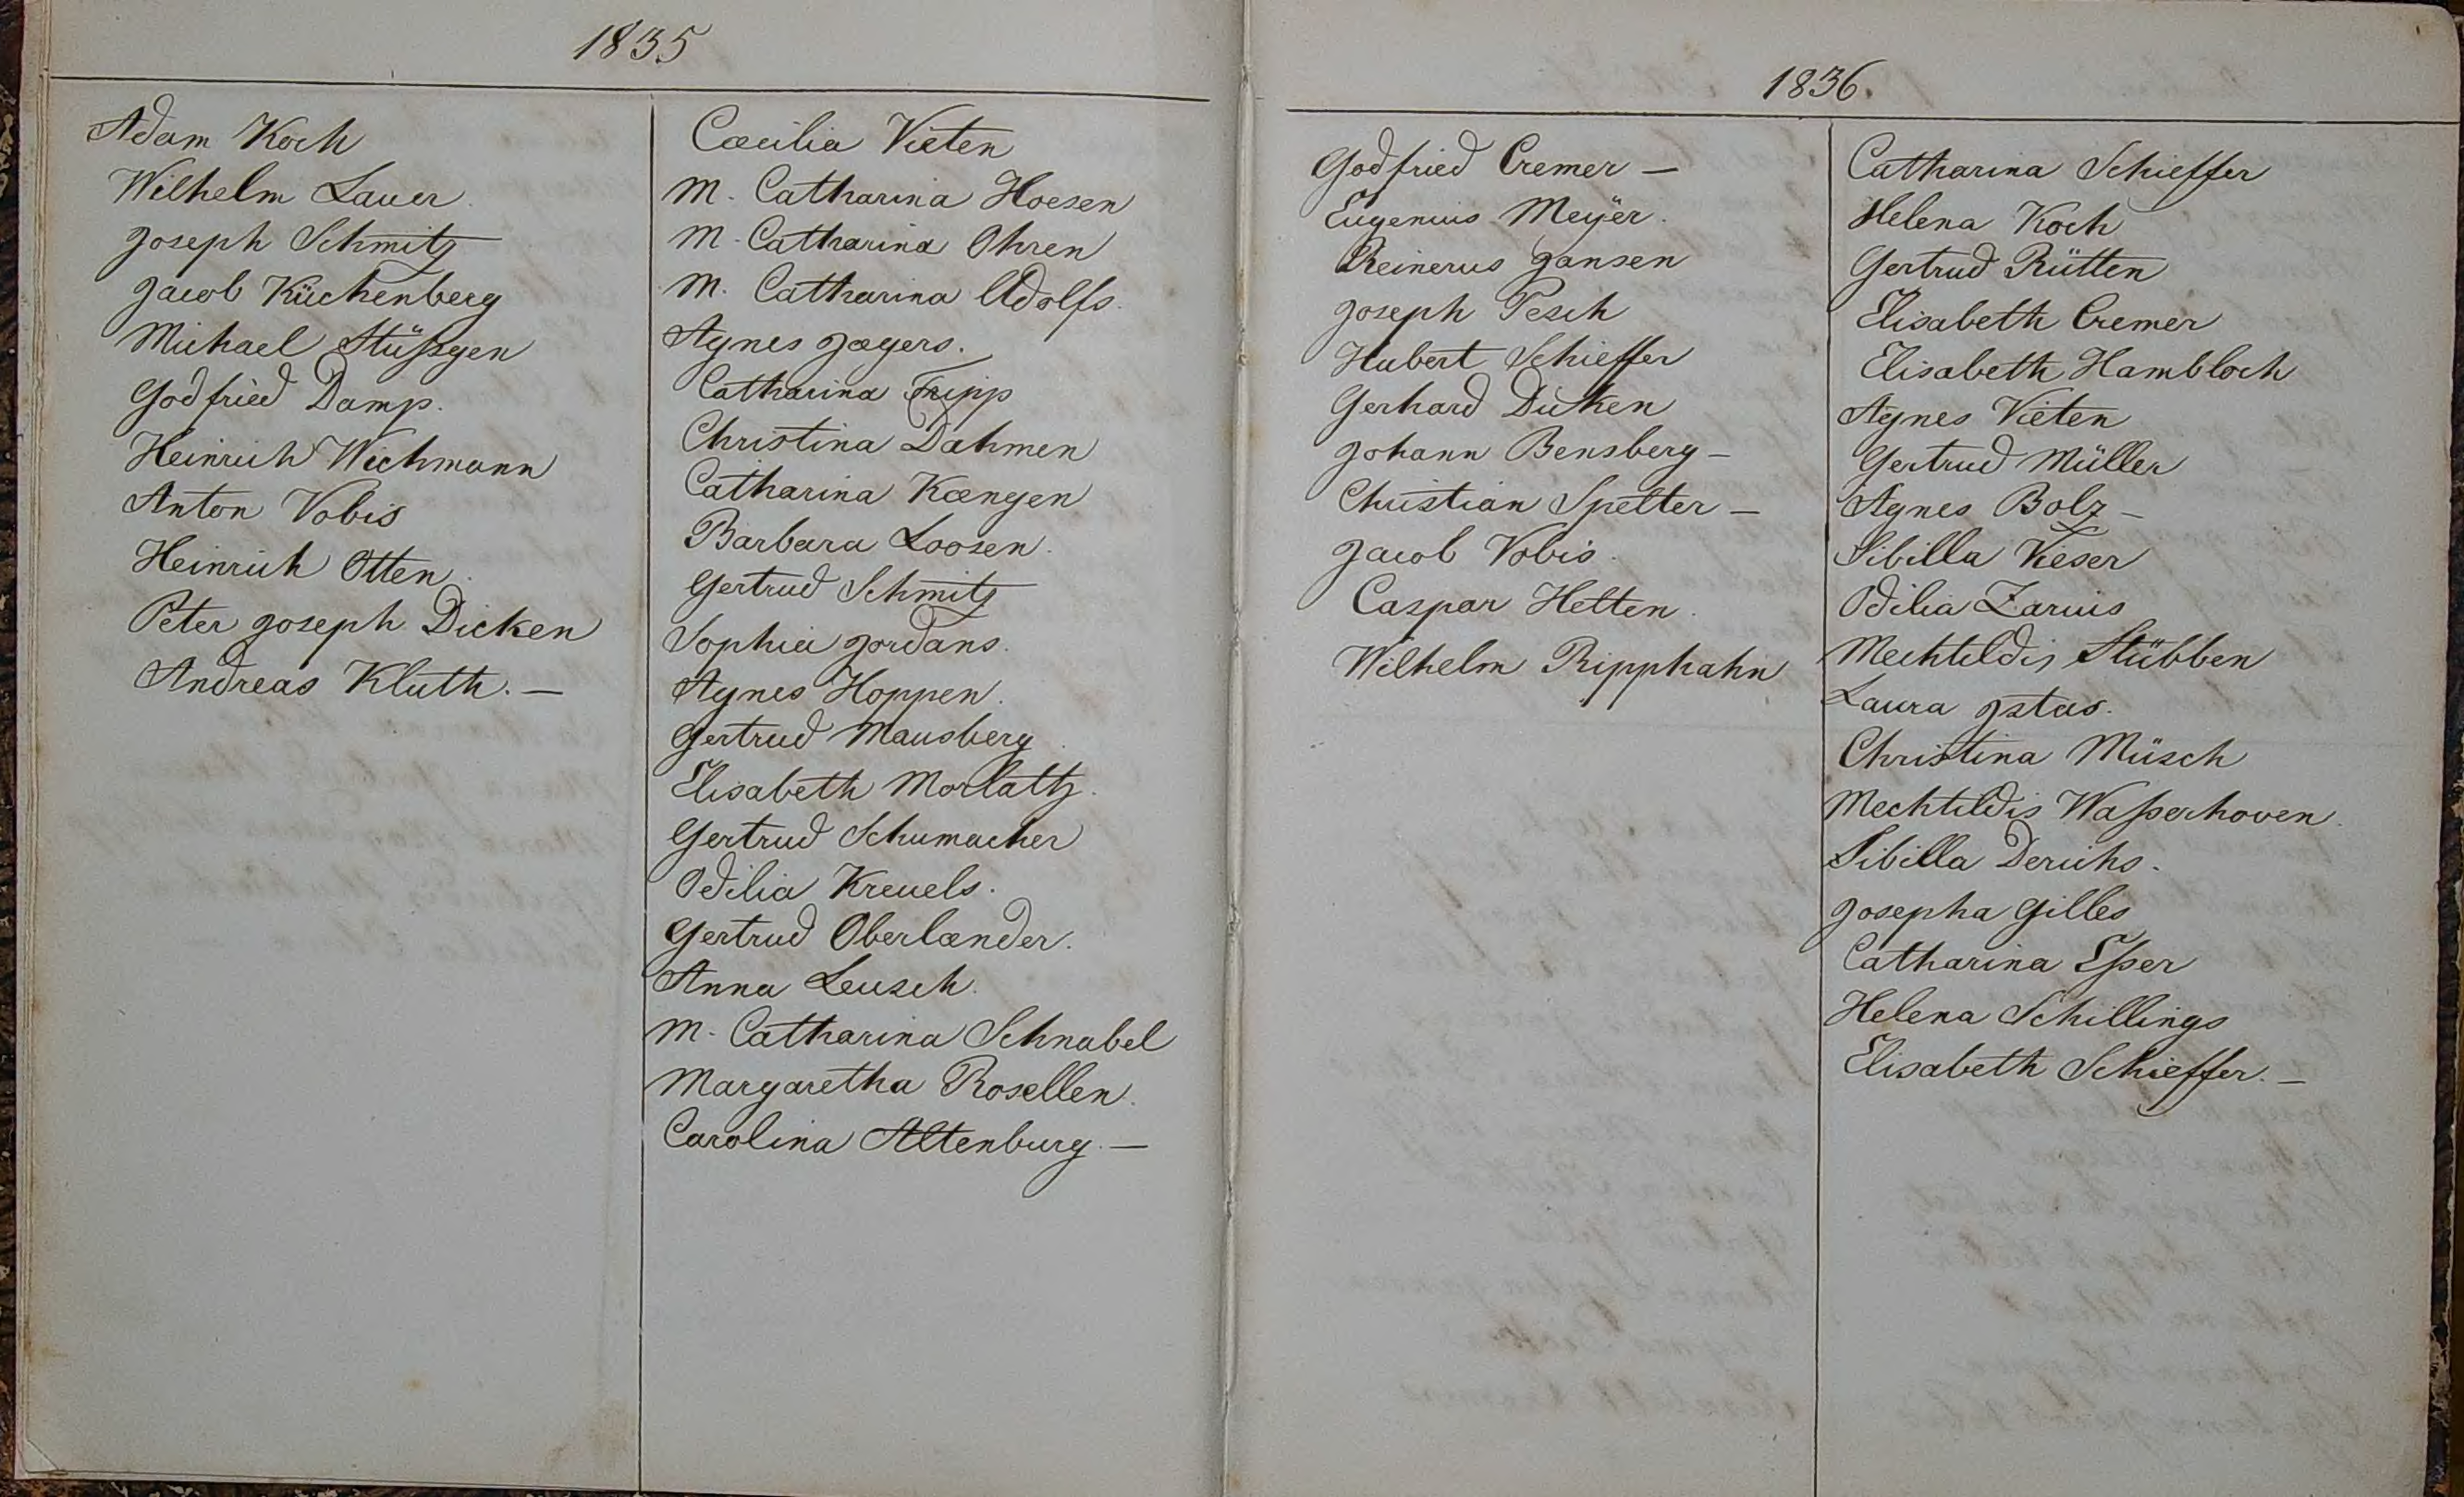 1835
Adam Koch
Wilhelm Lauer.
Joseph Schmitz
Jacob Küchenberg
Michael Stüßgen
Godfried Damp.
Heinrich Wichmann
Anton Vobis
Heinrich Otten.
Peter Joseph Dicken
Andreas Kluth. —
Cæcilia Vieten
M. Catharina Hoesen
M. Catharina Ohren
M. Catharina Adolfs.
Agnes Jægers.
Catharina Fripp
Christina Dahmen
Catharina Kængen
Barbara Loosen.
Gertrud Schmitz
Sophia Jordans.
Agnes Hoppen.
Gertrud Mausberg.
Elisabeth Morlatz.
Gertrud Schumacher
Odilia Kreuels.
Gertrud Oberlænder.
Anna Leusch.
M. Catharina Schnabel
Margaretha Rosellen.
Carolina Altenburg. —
1836.
Godfried Cremer —
Eugenius Meÿer.
Reinerus Jansen
Joseph Pesch
Hubert Schieffer
Gerhard Dicken
Johann Bensberg —
Christian Spelter —
Jacob Vobis.
Caspar Helten.
Wilhelm Ripphahn
Catharina Schieffer
Helena Koch
Gertrud Rütten
Elisabeth Cremer
Elisabeth Hambloch
Agnes Vieten
Gertrud Müller
Agnes Bolz —
Sibilla Keser
Odilia Zarius
Mechtildis Stübben
Laura Istas.
Christina Müsch
Mechtildis Waßerhoven.
Sibilla Derichs.
Josepha Gilles
Catharina Eßer
Helena Schillings
Elisabeth Schieffer. —